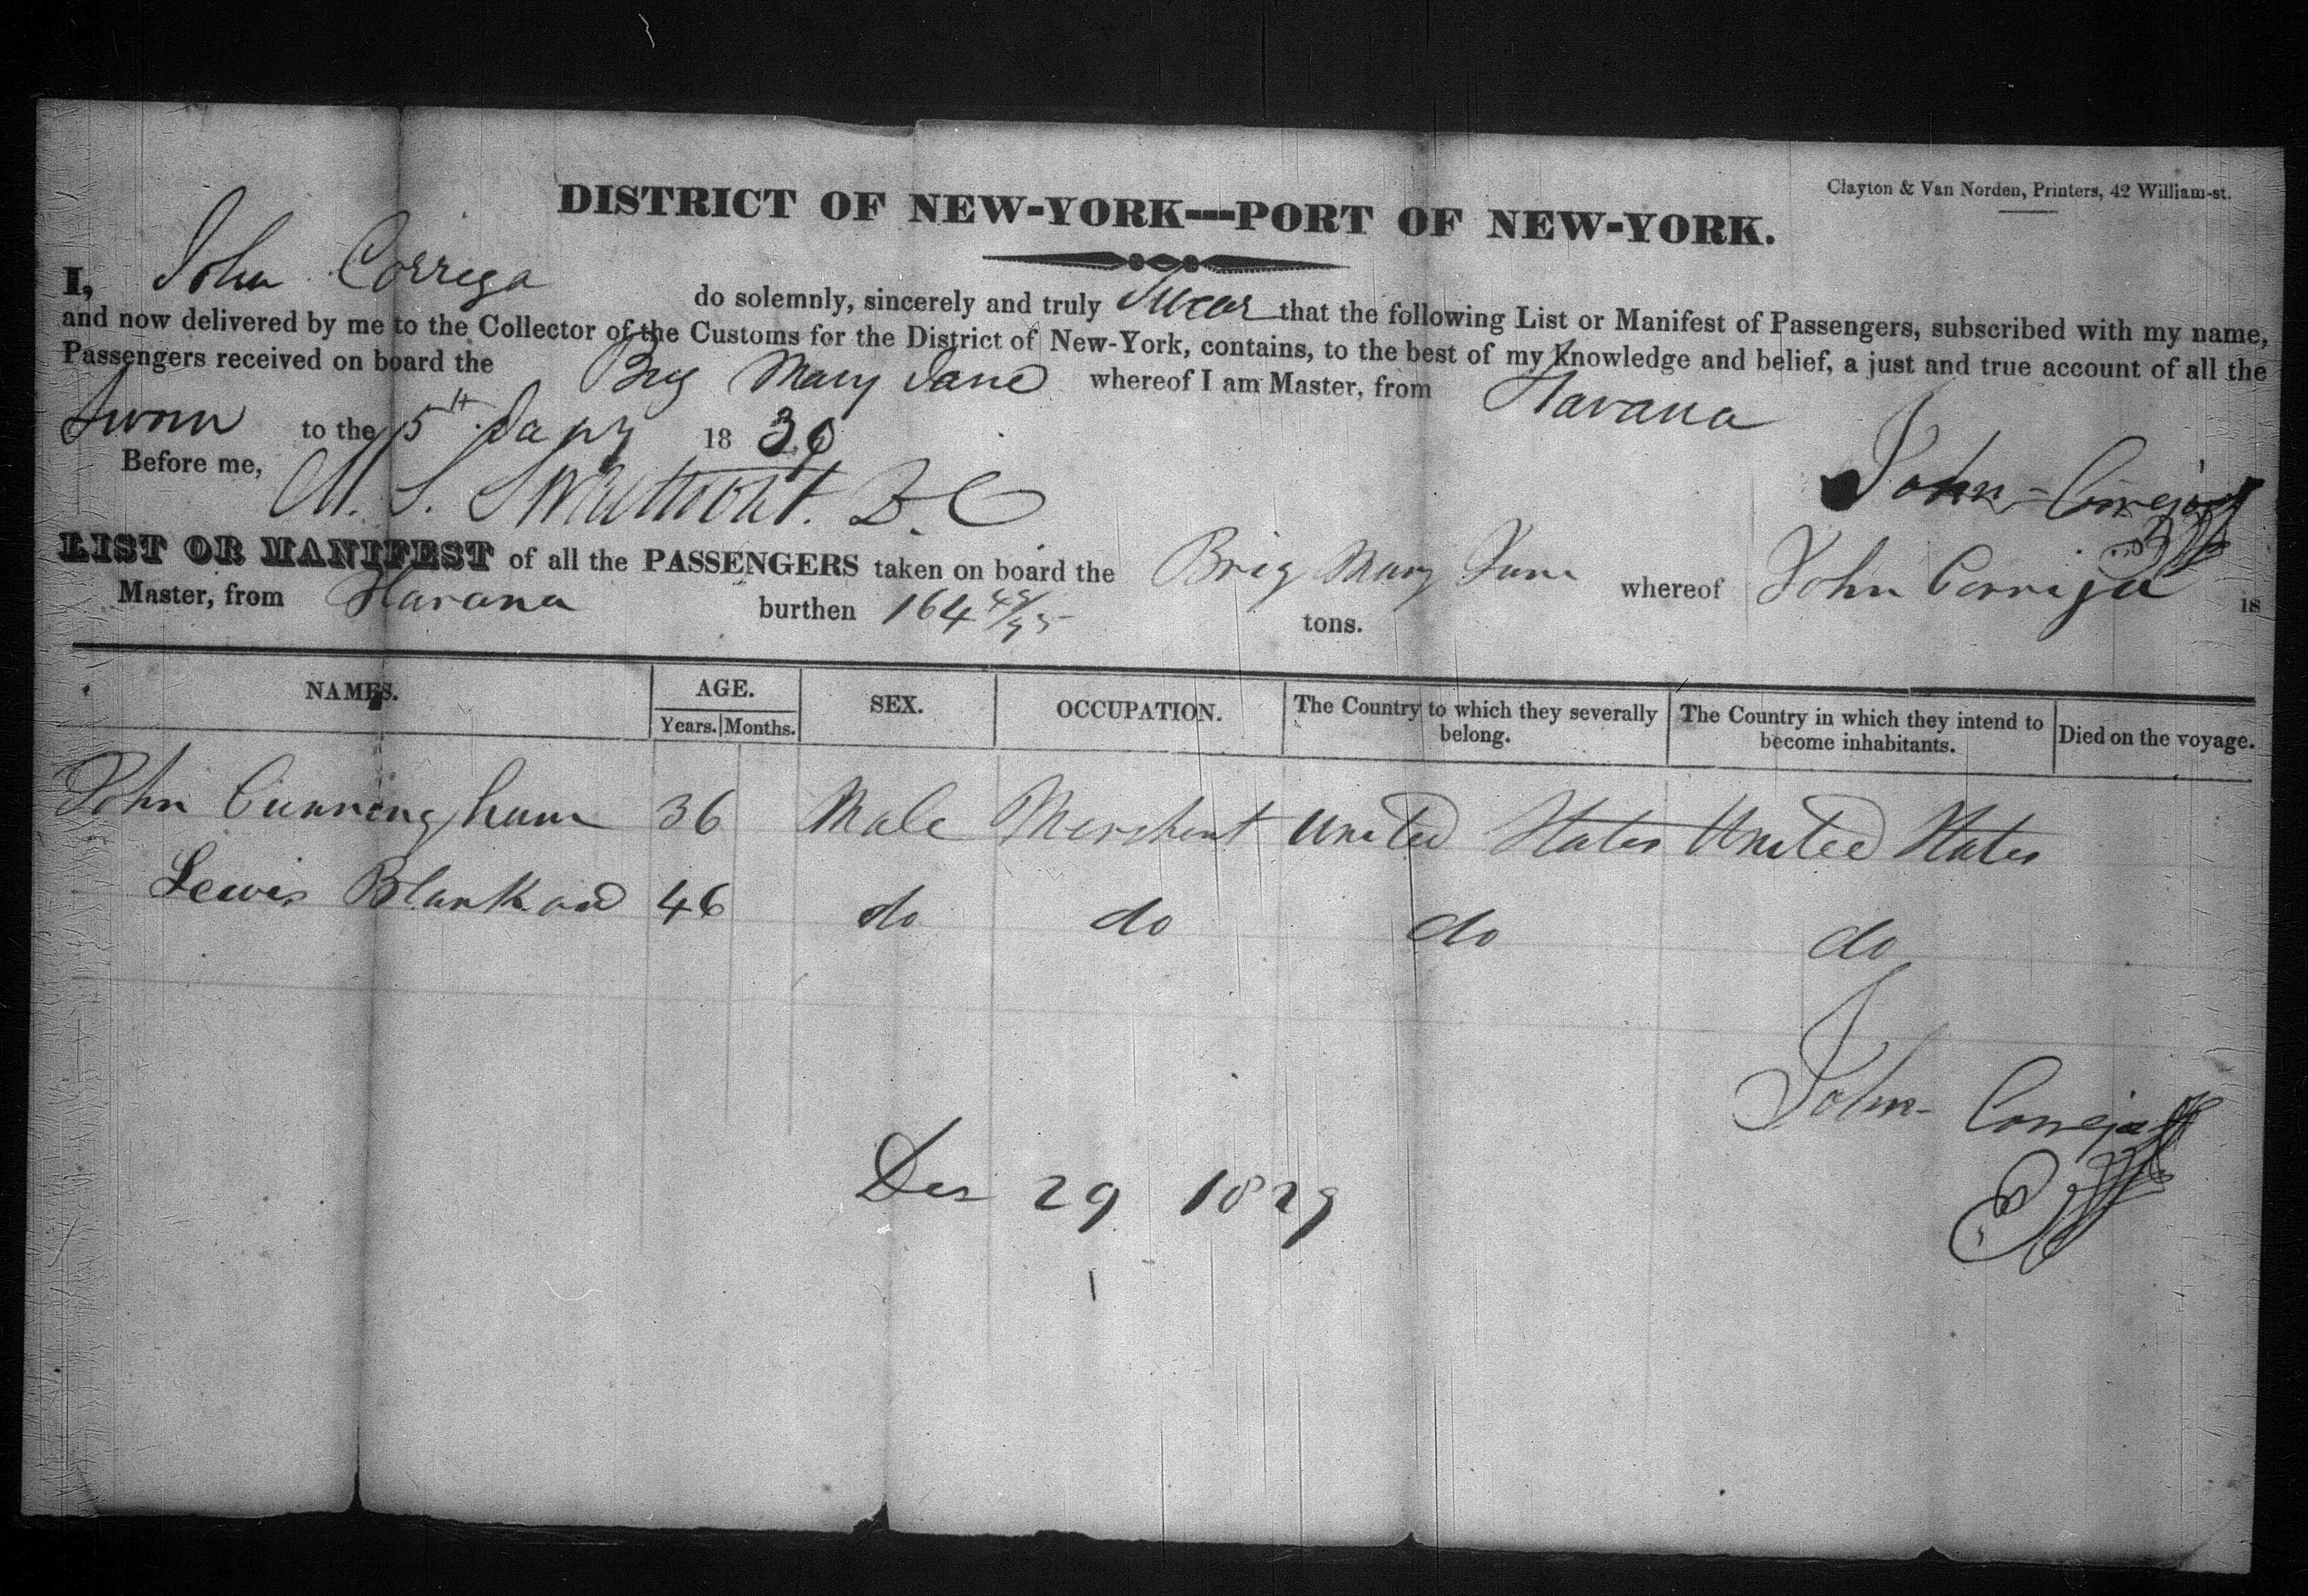 Clayton & Van Norden, Printers, 42 William-st.
DISTRICT OF NEW-YORK—PORT OF NEW-YORK.
I, John Correja do solemnly, sincerely and truly Swear that the following List or Manifest of Passengers, subscribed with my name,
and now delivered by me to the Collector of the Customs for the District of New-York, contains, to the best of my knowledge and belief, a just and true account of all the
Passengers received on board the Brig Mary Jane whereof I am Master, from Havana
Sworn to the 5th Jany 1830
John Correja
Before me, M. S. Swartwout. D. C
LIST OR MANIFEST of all the PASSENGERS taken on board the Brig Mary Jane whereof John Correja is
Master, from Havana burthen 164 45/95 tons.
NAMES. AGE. SEX. OCCUPATION. The Country to which they severally belong. The Country in which they intend to become inhabitants. Died on the voyage.
Years. Months.
John Cunningham 36 Male Merchant United States United States
Lewis Blankard 46 do do do do
John Correja
Dec 29 1829